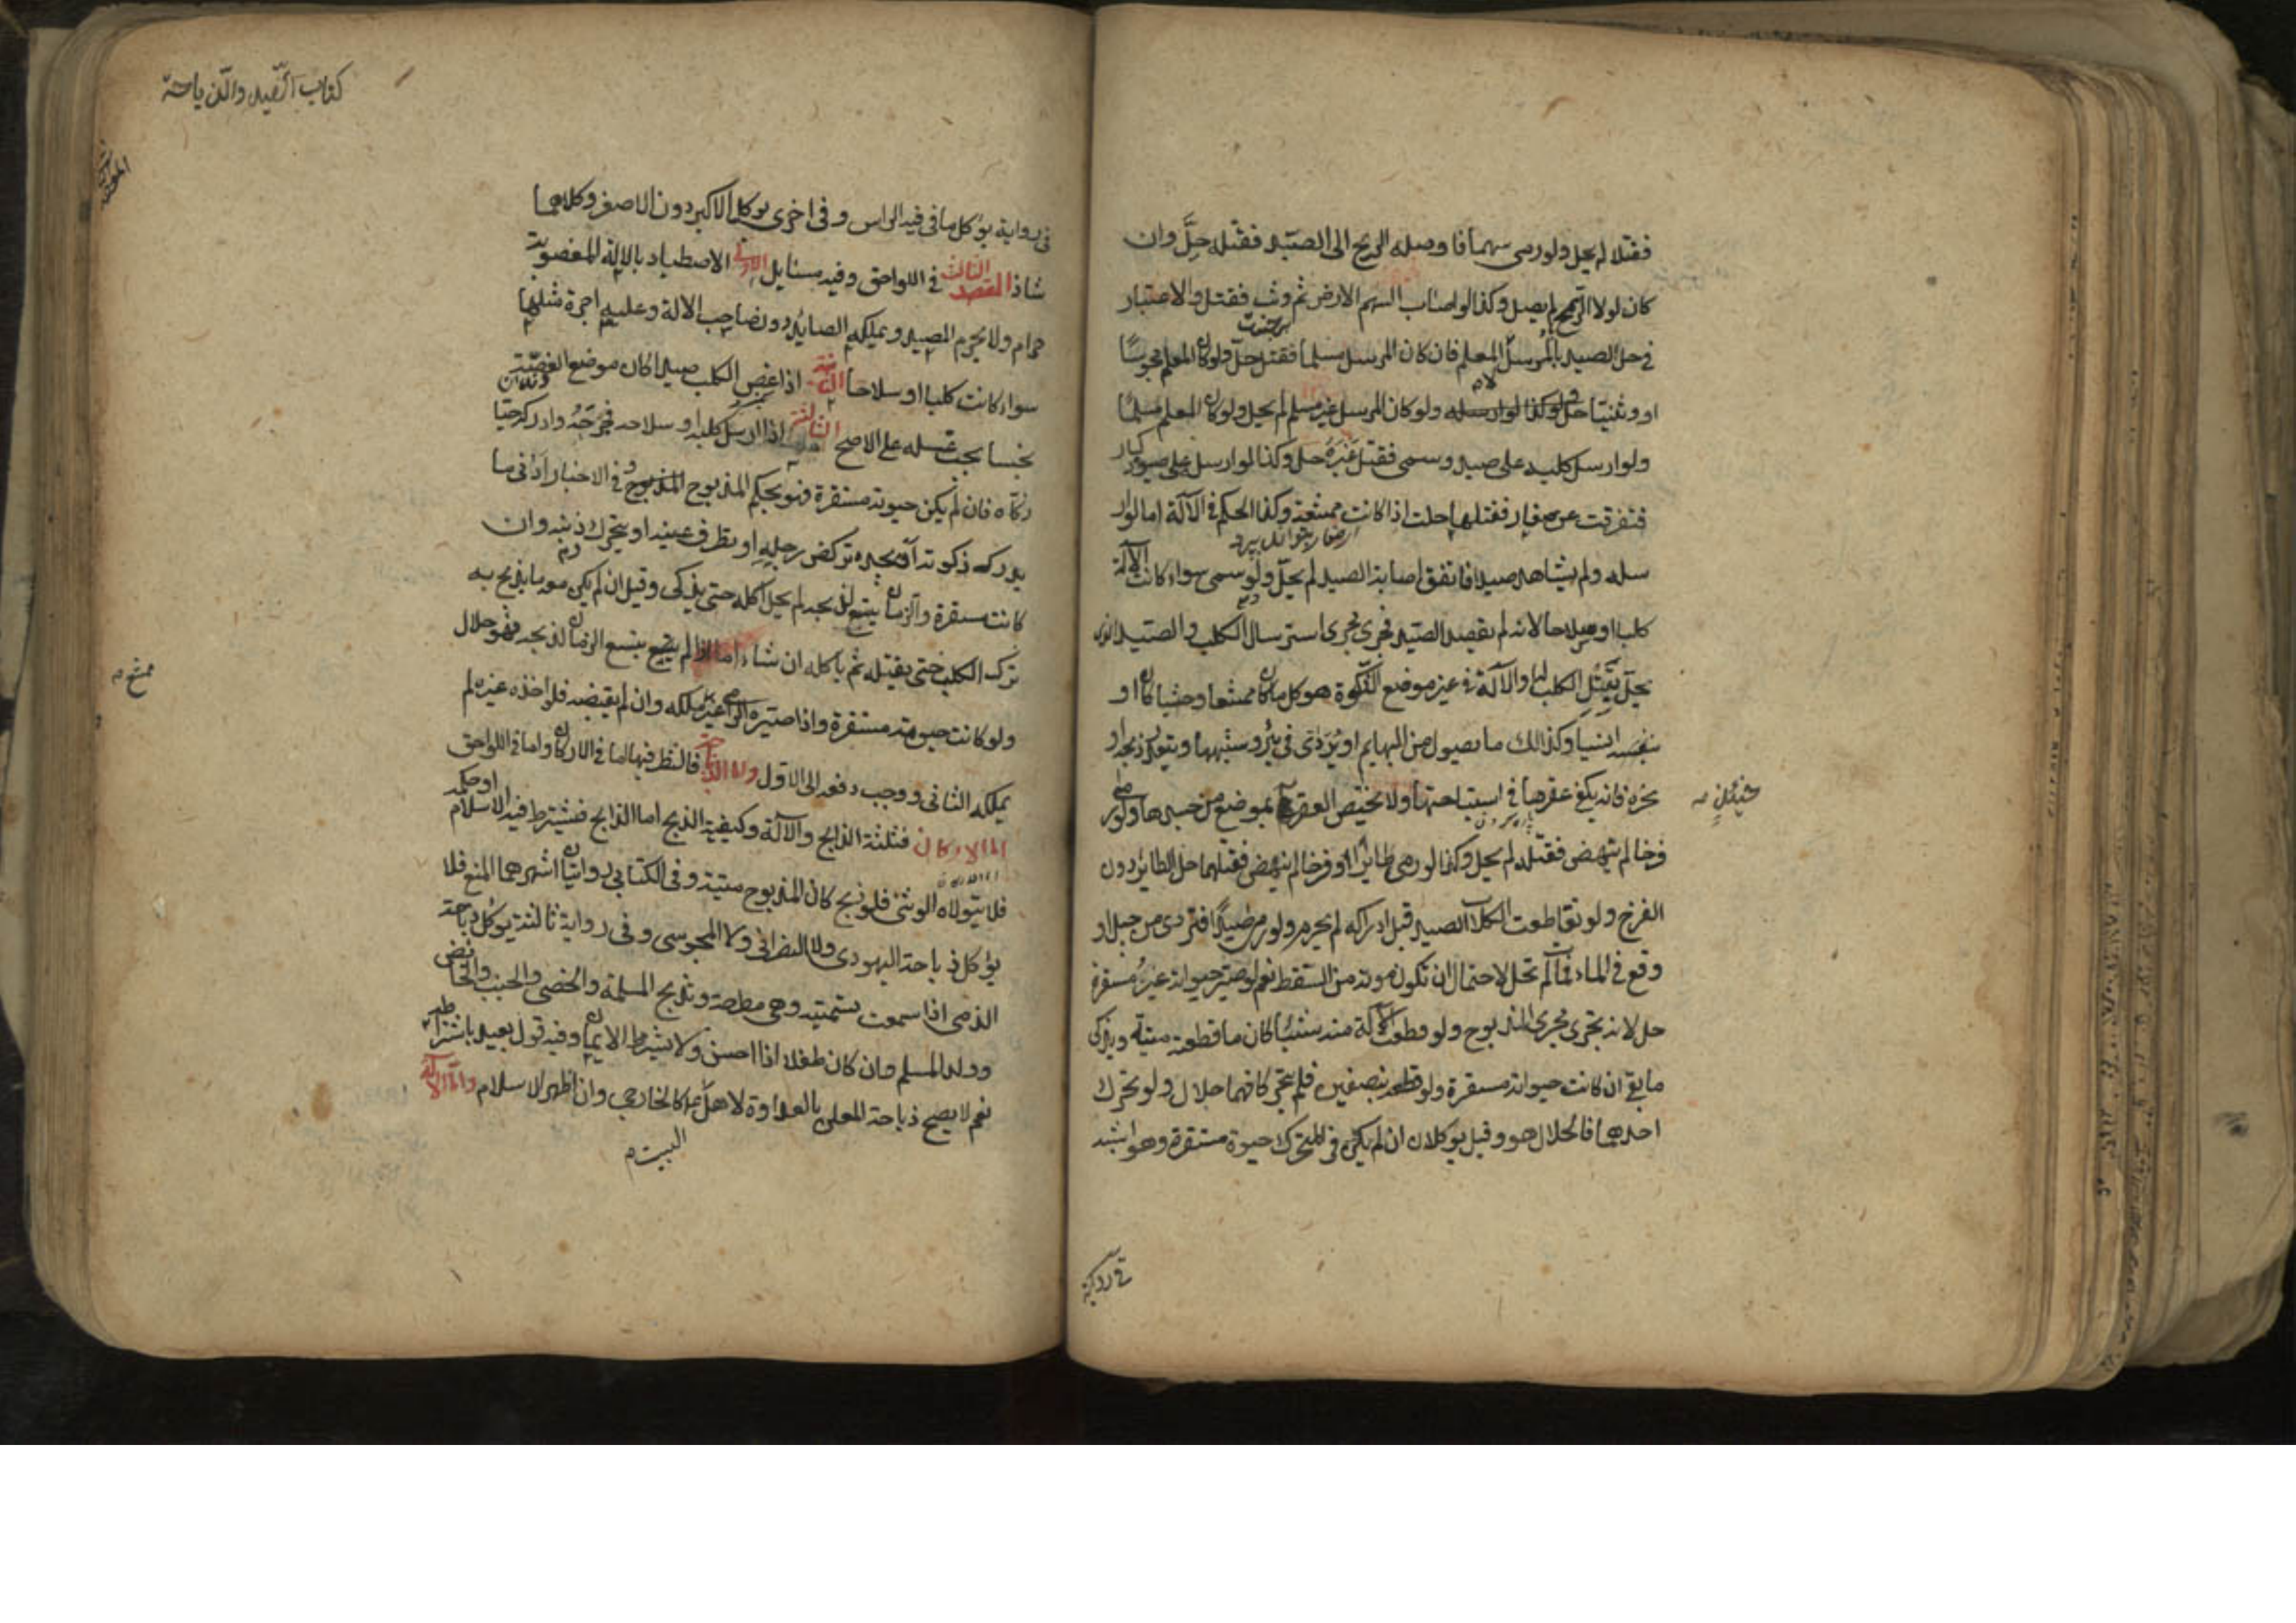 فقتلا لم يحل ولو رمى سهما فاوصله الريح الى الصيد فقتله حلَّ وان
كان لولا الريح لم يصل وكذا لو اصاب السهم الارض ثم وثب فقتل والاعتبار
في حل الصيد بالمرسل لا المعلم فان كان المرسل مسلما فقتل حل ولو كان المعلم مجوسيًا
او وثنيا حل ولو كان المرسل غير مسلم لم يحل ولو كان المعلم مسلمًا
ولو ارسل كلبه على صيد وسمى فقتل غيره حل وكذا لو ارسل على صيود كبار
فتفرقت عن صغار فقتلها حلت اذا كانت ممتنعة وكذا الحكم في الآلة اما لو ار
سله ولم يشاهد صيدا فاتفق اصابة الصيد لم يحل ولو سمى سواء كانت الآلة
كلبا او سلاحا لانه لم يقصد الصيد فجرى مجرى استرسال الكلب والصيد الذي
يحل بقتل الكلب له او الآلة في غير موضع الذكوة هو كل ما كان ممتنعا وحشيا كان او
انسيا وكذلك ما يصول من البهايم او يتردى في بئر وشبهها ويتعذر ذبحه او
نحره فانه يكفي عقرها في استباحتها ولا يختص العقر بموضع من جسدها ولو رمى
حينئذٍ
فرخا لم ينهض فقتله لم يحل وكذا لو رمى طايرا وفرخا لم ينهض فقتلهما حل الطاير دون
الفرخ ولو تقاطعت الكلاب الصيد قبل ادراكه لم يحرم ولو رمى صيدًا فتردى من جبل او
وقع في الماء فمات لم تحل لاحتمال ان تكون موته من السقط نعم لو صير حيوته غير مستقرة
حل لانه يجري مجرى المذبوح ولو قطعت الآلة منه شيئًا كان ما قطعته ميتة ويذكى
ما بقى ان كانت حيوته مستقرة ولو قطعه بنصفين فلم يتحركا فهما حلال ولو تحرك
احدهما فالحلال هو وقيل يوكلان ان لم يكن في المتحرك حيوة مستقرة وهو اشبه
كتاب الصيد والذباحة
في رواية يؤكل ما فيه الراس وفي اخرى يوكل الاكبر دون الاصغر وكلاهما
شاذ المقصد الثالث في اللواحق وفيه مسايل الاولى الاصطياد بالالة المغصوبة
حرام ولا يحرم الصيد ويملكه الصايد دون صاحب الالة وعليه اجرة مثلها
سواء كانت كلبا او سلاحا الثانية اذا عض الكلب صيدا كان موضع العضة
نجسا يجب غسله على الاصح الثالثة اذا ارسل كلبه او سلاحه فجرحه وادركه حيا
ذكاه فان لم يكن حيوته مستقرة فهو بحكم المذبوح وفي الاخبار ادنى ما
يدرك ذكوته ان يجده تركض رجله او تطرف عينه او يتحرك ذنبه وان
كانت مستقرة والزمان يتسع لذبحه لم يحل اكله حتى يذكى وقيل ان لم يكن معه ما يذبح به
ترك الكلب حتى يقتله ثم ياكله ان شاء اما اذا لم يتسع الزمان لذبحه فهو حلال
ولو كانت حيوته مستقرة واذا صيره الرامي غير ممتنع ملكه وان لم يقبضه فلو اخذه غيره لم
يملكه الثاني ووجب دفعه الى الاول واما الذباحة فالنظر فيها اما في الاركان واما في اللواحق
اما الاركان فثلثة الذابح والآلة وكيفية الذبح اما الذابح فيشترط فيه الاسلام او حكمه
فلا يتولاه الوثني فلو ذبح كان المذبوح ميتة وفي الكتابي روايتان اشهرهما المنع فلا
يؤكل ذباحة اليهودي ولا النصراني ولا المجوسي وفي رواية ثالثة يوكل ذباحة
الذمى اذا سمعت تسميته وهي مطرحة وتذبح المسلمة والخصى والجنب والحائض
وولد المسلم وان كان طفلا اذا احسن ولا يشترط الايمان وفيه قول بعيد باشتراطه
نعم لا يصح ذباحة المعلن بالعداوة لاهل البيت كالخارجي وان اظهر الاسلام واما الآلة